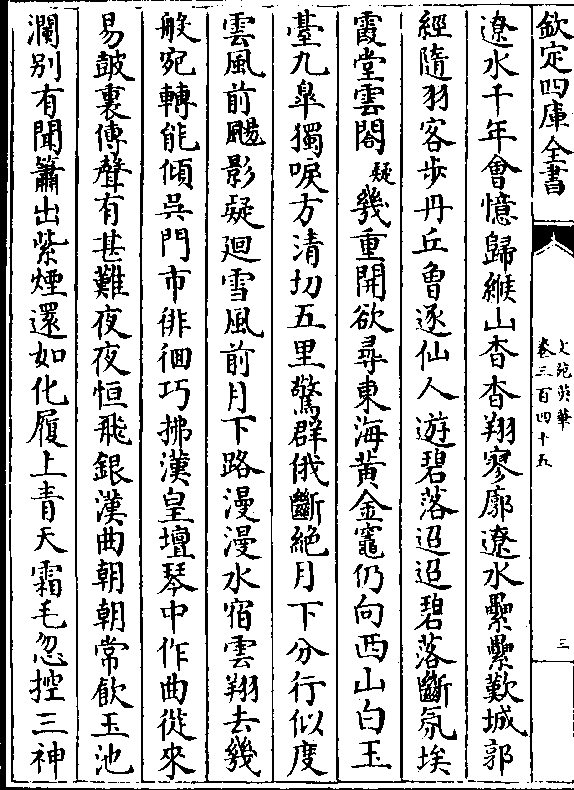 欽定四庫全書
文苑英華
卷三百四十五
三
遼水千年會憶歸緱山杳杳翔寥廓遼水纍纍歎城郭
經隨羽客步丹丘曾逐仙人遊碧落迢迢碧落斷氛埃
霞堂雲閣疑幾重開欲尋東海黃金竈仍向西山白玉
臺九皐獨唳方清切五里驚群俄斷絕月下分行似度
雲風前飏影疑廻雪風前月下路漫漫水宿雲翔去幾
般宛轉能傾吳門市徘徊巧拂漢皇壇琴中作曲從來
易皷裏傳聲有甚難夜夜恒飛銀漢曲朝朝常飲玉池
瀾别有聞簫出紫煙還如化履上青天霜毛忽控三神